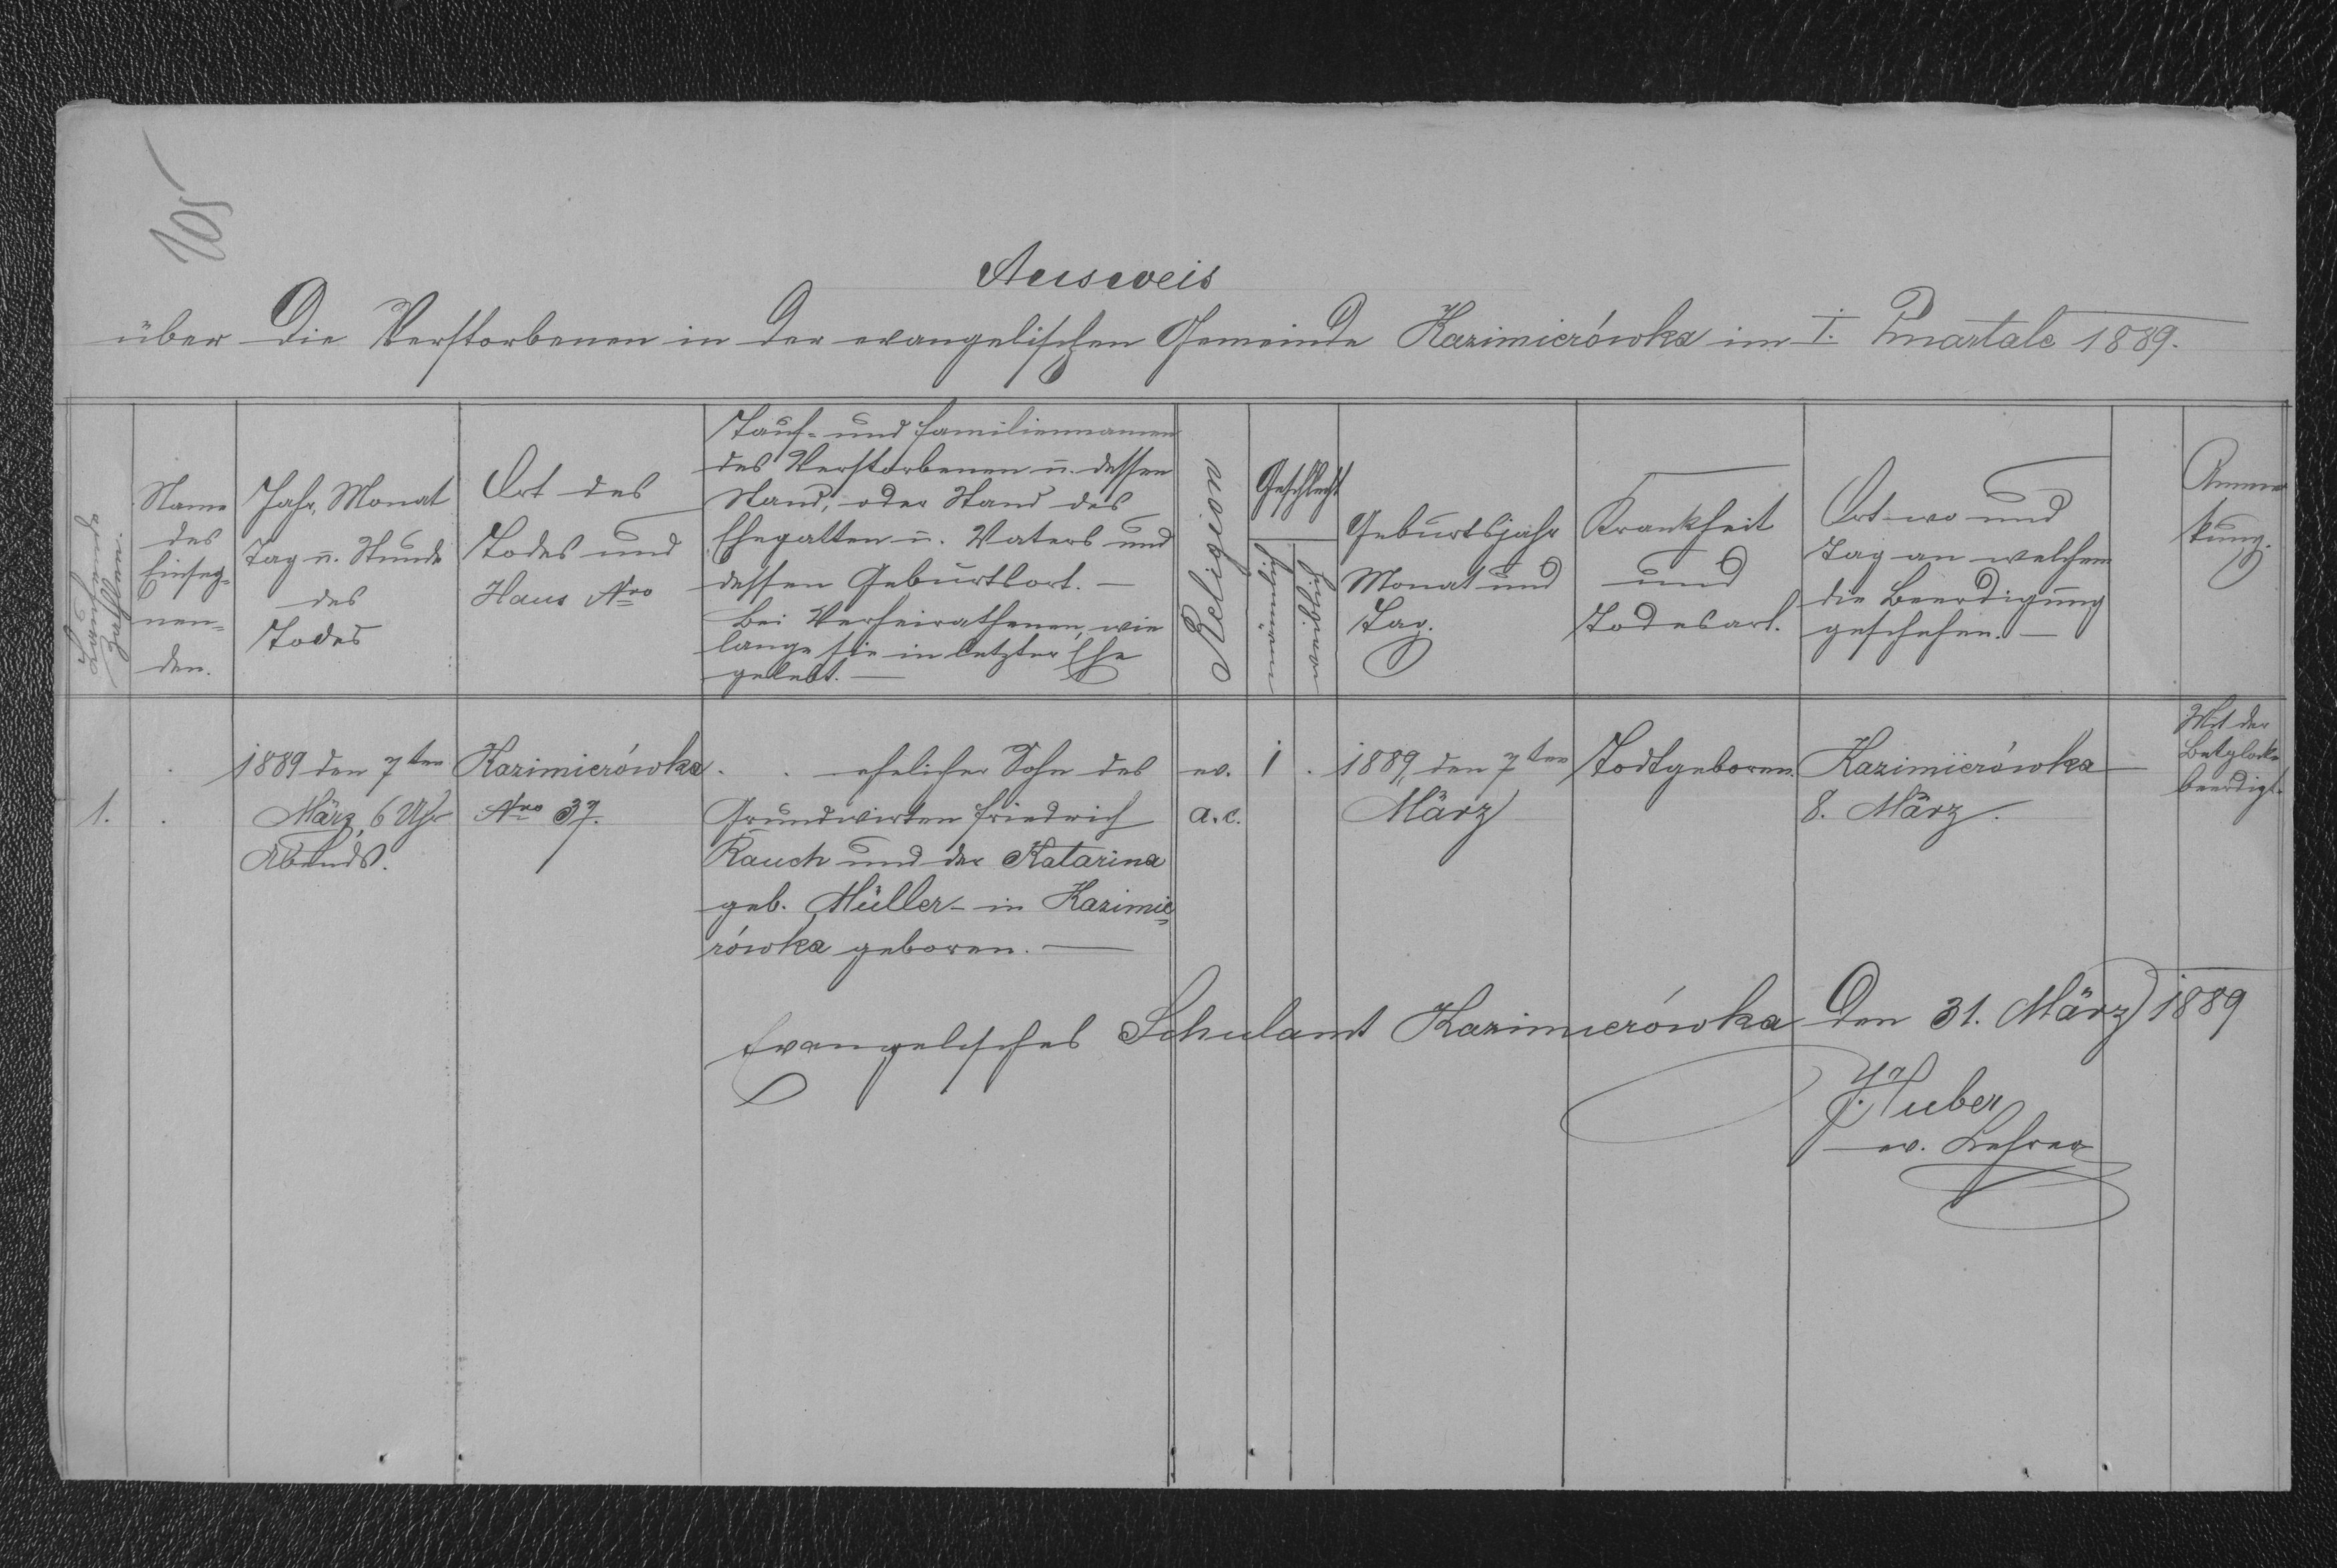 105
Ausweis
über die Verstorbenen in der evangelischen Gemeinde Kazimierówka im I. Quartale 1889.
Fortlaufende Zahl.
Name
des
Einseg-
nen-
den.
Jahr, Monat
Tag u. Stunde
des
Todes
Ort des
Todes und
Haus Nro
Tauf- und Familiennamen
des Verstorbenen u. dessen
Stand, oder Stand des
Ehegatten u. Vaters und
dessen Geburtsort. —
Bei Verheiratheten, wie
lange sie in letzter Ehe
gelebt. —
Religion
Geschlecht
männlich
weiblich
Geburtsjahr
Monat und
Tag.
Krankheit
und
Todesart.
Ort wo und
Tag an welchem
die Beerdigung
geschehen. —
Anmer
kung.
1.
1889 den 7ten
März, 6 Uhr
Abends.
Kazimierówka
Nro 37.
. . ehelicher Sohn des
Grundwirten Friedrich
Rauch und der Katarina
geb. Müller - in Kazimie=
rówka geboren. —
ev.
a.c.
1
.
1889, den 7ten
März
Todtgeboren.
Kazimierówka
8. März.
Mit der
Betglocke
beerdigt.
Evangelisches Schulamt Kazimierówka den 31. März 1889
J. Huber
ev. Lehrer